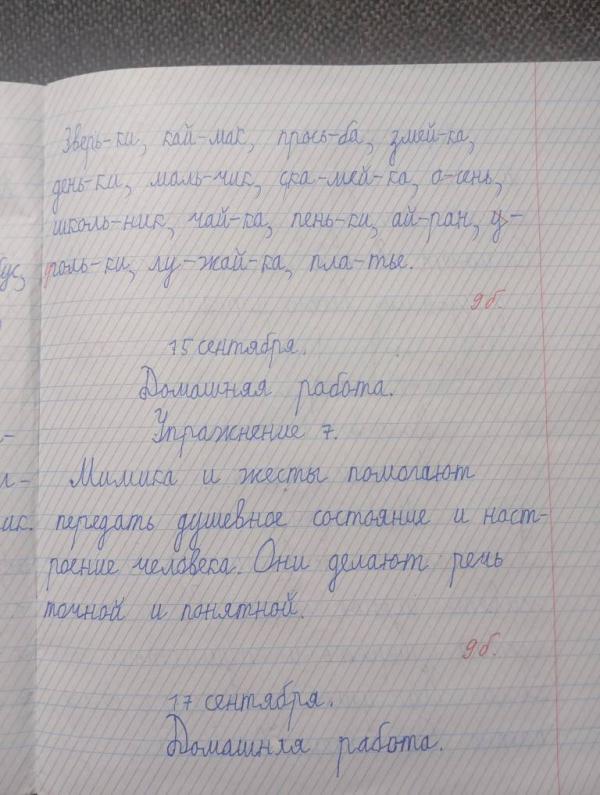 Зверь-ки, кай-мак, прось-ба, змей-ка,
день-ки, маль-чик, ска-мей-ка, о-сень,
школь-ник, чай-ка, пень-ки, ай-ран, у-
бус, роль-ки, лу-жай-ка, пла-тье.
9б.
15 сентября.
Домашняя работа.
Упражнение 7.
Мимика и жесты помогают
ик. передать душевное состояние и наст-
роение человека. Они делают речь
точной и понятной.
9б.
17 сентября.
Домашняя работа.